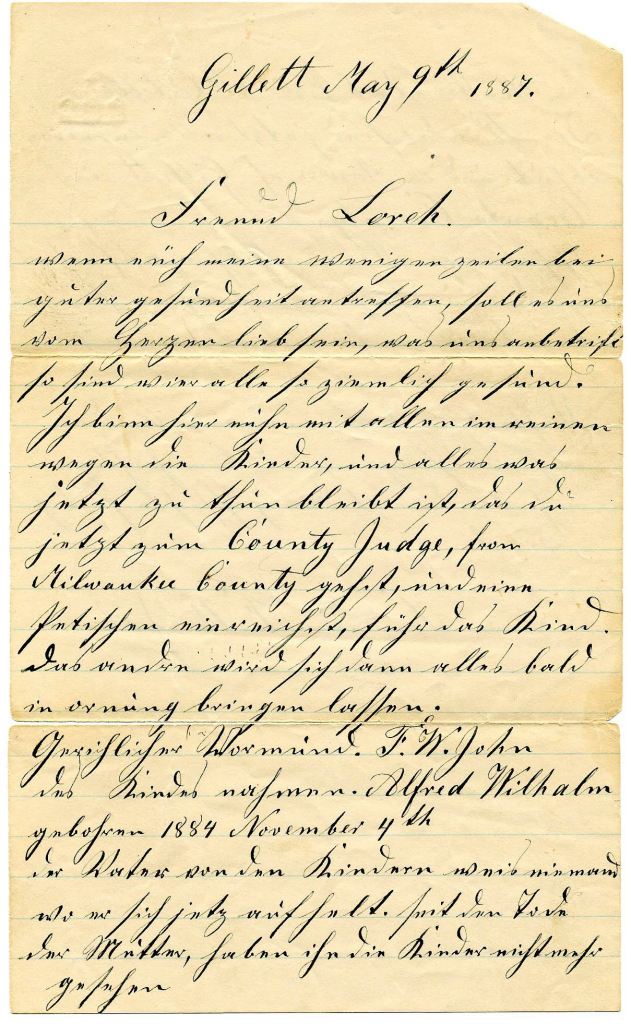 Gillett May 9th 1887.
Freund Lorch.
wenn euch meine wenigen zeilen bei
guter gesundheit antreffen, soll es uns
vom Herzen lieb sein, was uns anbetrift
so sind wier alle so ziemlich gesund.
Ich binn hier nuhn mit allen im reinen
wegen die Kinder, und alles was
jetzt zu thun bleibt ist, das du
jetzt zum County Judge, from
Milwaukee County gehst, und eine
Petischen einreichst, führ das Kind.
das andre wird sich dann alles bald
in ornung bringen lassen.
Gerichlicher Vormund. F. W. John
des Kindes nahmen. Alfred Wilhalm
gebohren 1884 November 4th
der Vater von den Kindern weis niemand
wo er sich jetz aufhelt. seit den Tode
der Mutter, haben ihn die Kinder nicht mehr
gesehen